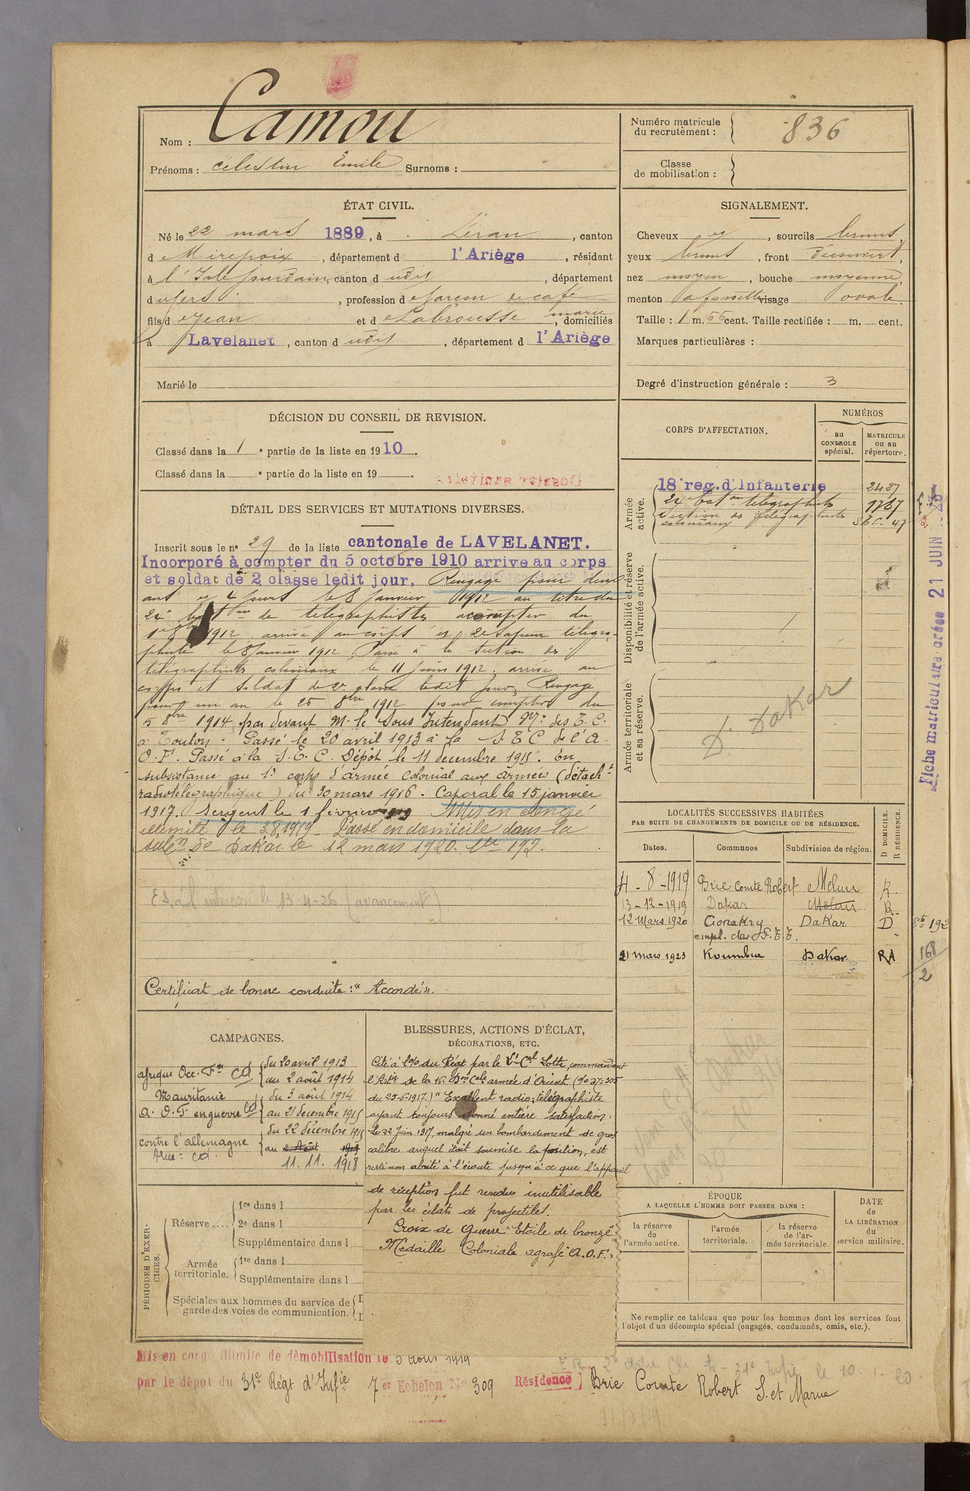 Nom : Camou
Prénoms : Célestin Emile Surnoms :
Numéro matricule du recrutement : 836
Classe de mobilisation :
ÉTAT CIVIL.
Né le 22 mars 1889, à Léran, canton
d Mirepoix, département d l'Ariège, résidant
à l'Isle Jourdain, canton d udit, département
d u Gers, profession de garçon de café
fils d e Jean et de Labrousse marie, domiciliés
à Lavelanet, canton d udit, département d l'Ariège
Marié le
SIGNALEMENT.
Cheveux et, sourcils bruns
yeux bruns, front découvert,
nez moyen, bouche moyenne
menton à fossette visage ovale.
Taille : 1 m. 66 cent. Taille rectifiée : m. cent.
Marques particulières :
Degré d'instruction générale : 3
DÉCISION DU CONSEIL DE REVISION.
Classé dans la 1e partie de la liste en 1910.
Classé dans la e partie de la liste en 19 .
CORPS D'AFFECTATION.
NUMÉROS
au CONTROLE spécial.
MATRICULE ou au répertoire.
Armée active.
18e reg. d'Infanterie 2437
24e bat on télégraphiste 1767
Section de télégraphistes coloniaux 47
Disponibilité et réserve de l'armée active.
Armée territoriale et sa réserve.
D. Dakar
DÉTAIL DES SERVICES ET MUTATIONS DIVERSES.
Inscrit sous le n° 29 de la liste cantonale de LAVELANET.
Incorporé à compter du 5 octobre 1910 arrivé au corps
et soldat de 2 classe ledit jour. Rengagé pour deux
ans et 4 jours le 8 janvier 1912 au titre du
24e bat on de télégraphistes à compter du
1912 arrivé au corps et 2e Sapeur télégra-
phiste le 8 janvier 1912. Passé à la Section de
télégraphistes coloniaux le 11 juin 1912, arrivé au
corps et soldat de 2e classe ledit jour. Rengagé
pour un an le 25 8bre 1912 pour compter du
5 8bre 1914, par devant M. le Sous Intendant Mre des T.C.
à Toulon. Passé le 20 avril 1913 à la S E C de l'A
O.F. Passé à la S.E.C. Dépôt le 11 décembre 1915. En
subsistance au 1er corps d'armée Colonial aux armées (détacht
radiotélégraphique) du 30 mars 1916. Caporal le 15 janvier
1917. Sergent le 1 février Mis en congé
illimité le 3.8.1919 Passé en domicile dans la
subon de Dakar le 12 mars 1920. 192.
(avancement)
Certificat de bonne conduite : "Accordé".
LOCALITÉS SUCCESSIVES HABITÉES
PAR SUITE DE CHANGEMENTS DE DOMICILE OU DE RÉSIDENCE.
Dates. Communes Subdivision de région. D DOMICILE. R RÉSIDENCE.
4-8-1919 Brie Comte Robert Melun R.
13-12-1919 Dakar Melun R.
12 Mars 1920 Conakry Dakar D
empl. des P.T.T.
21 mars 1923 Koumbia Dakar RA
168
2
Fiche matriculaire créée 21 JUIN
CAMPAGNES.
Afrique Occ. Fse CD du 20 avril 1913
au 2 août 1914
Mauritanie
A.O.F. en guerre CD du 3 août 1914
au 21 décembre 1915
contre l'allemagne
du 22 décembre 1915
au 2 Août 1919
11.11.1918
BLESSURES, ACTIONS D'ÉCLAT,
DÉCORATIONS, ETC.
Cité à l'O/ du Régt par le Lt Cel Lotte, commandant
l'Artie de la 16e Don Cole armée d'Orient
"Excellent radio-télégraphiste
ayant toujours donné entière satisfaction.
Le 22 Juin 1917, malgré un bombardement de gros
calibre auquel était soumise la position, est
resté non abrité à l'écoute jusqu'à ce que l'appareil
de réception fut rendu inutilisable
par les éclats de projectiles.
Croix de Guerre Etoile de bronze
Médaille Coloniale agrafe A.O.F.
PÉRIODES D'EXERCICES.
Réserve .... 1re dans l
2e dans l
Supplémentaire dans l
Armée territoriale. 1re dans l
Supplémentaire dans l
Spéciales aux hommes du service de garde des voies de communication.
ÉPOQUE
A LAQUELLE L'HOMME DOIT PASSER DANS :
la réserve de l'armée active.
l'armée territoriale.
la réserve de l'armée territoriale.
DATE DE LA LIBÉRATION du service militaire.
Ne remplir ce tableau que pour les hommes dont les services font
l'objet d'un décompte spécial (engagés, condamnés, omis, etc.).
Mis en congé illimité de démobilisation le 3 Août 1919
par le dépôt du 31e Régt d'Infie 7er Echelon N° 309 Résidence Brie Comte Robert S. et Marne